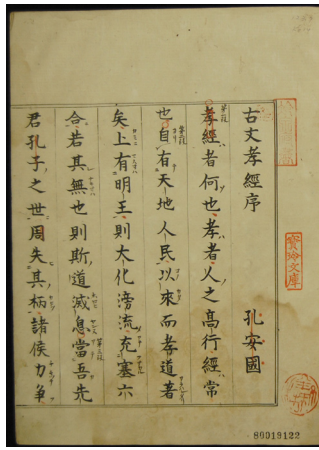 古文孝經序
孔安國
孝經者何也孝者人之高行經常
也自有天地人民以來而孝道著
矣上有明王則大化滂流充塞六
合若其無也則斯道滅息當吾先
君孔子之世周失其柄諸侯力爭
寶玲文庫
80019122